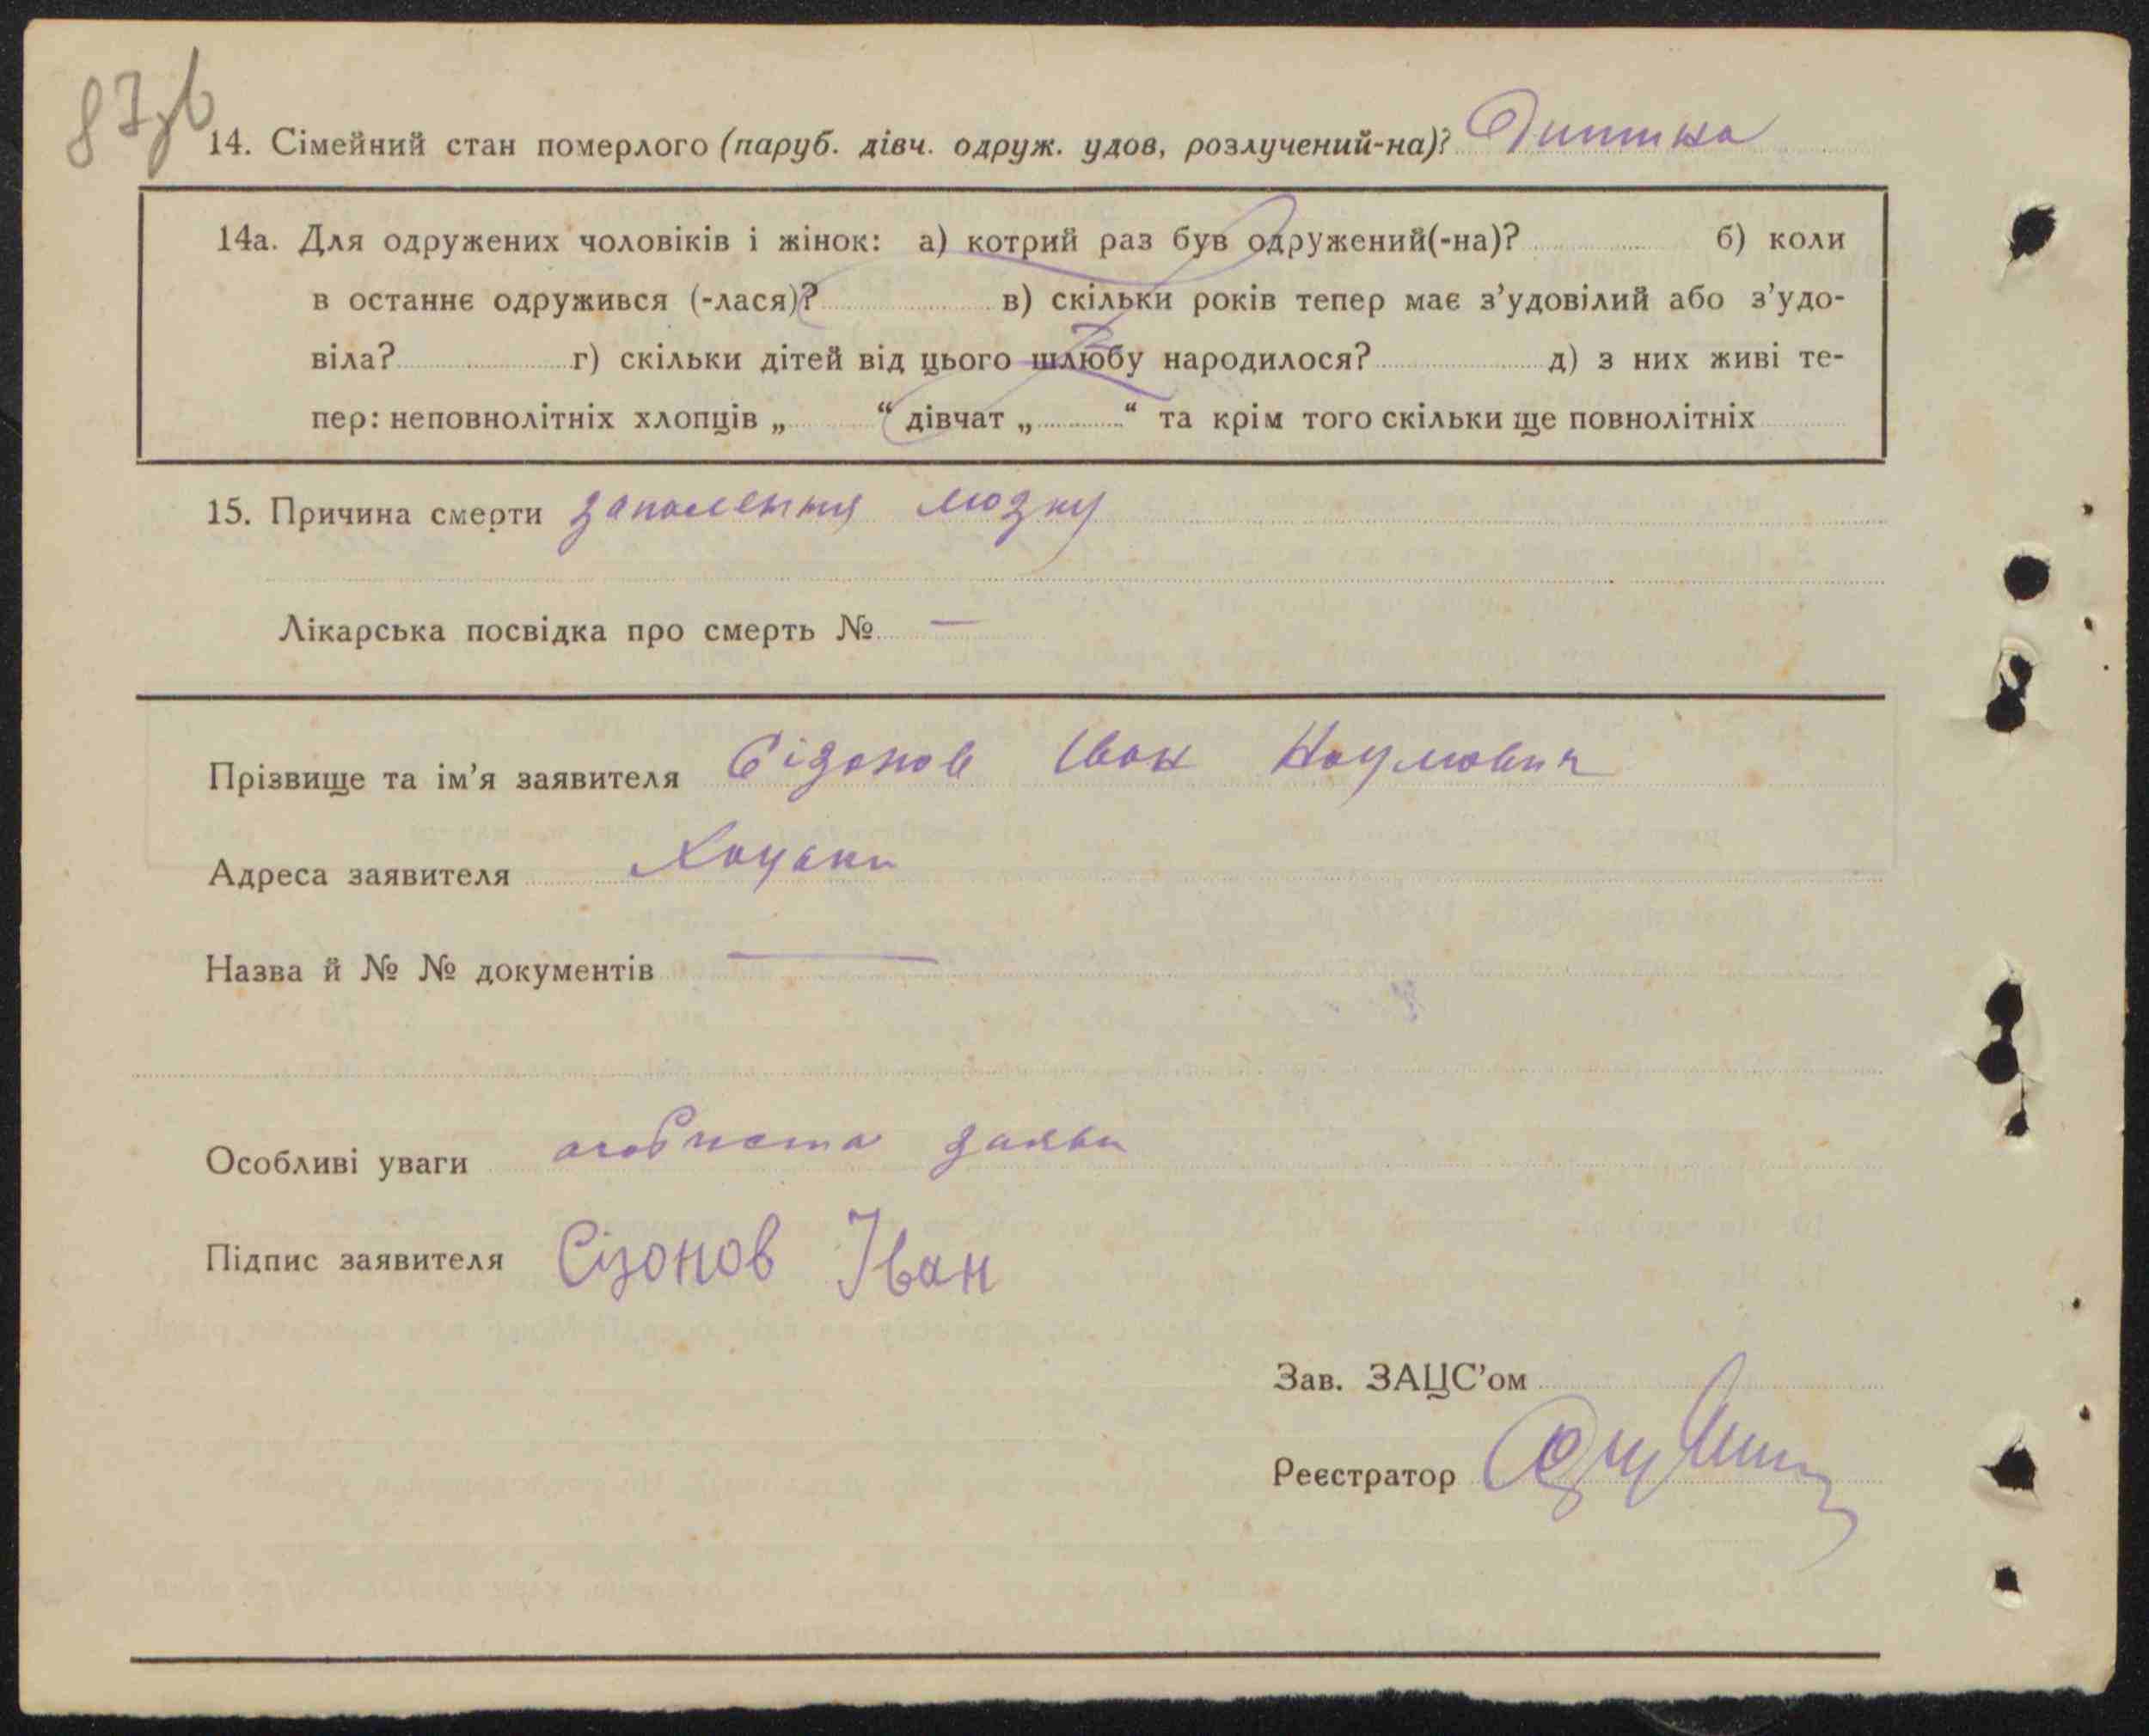 87зв
14. Сімейний стан померлого (паруб. дівч. одруж. удов, розлучений-на)? Дитина
14а. Для одружених чоловіків і жінок: а) котрий раз був одружений(-на)? б) коли
в останнє одружився (-лася)? в) скільки років тепер має з’удовілий або з’удо-
віла? г) скільки дітей від цього шлюбу народилося? д) з них живі те-
пер: неповнолітніх хлопців „ “ дівчат „ “ та крім того скільки ще повнолітніх
15. Причина смерти запалення мозку
Лікарська посвідка про смерть № —
Прізвище та ім’я заявителя Сізонов Іван Наумович
Адреса заявителя Хацьки
Назва й № № документів —
Особливі уваги особиста заява
Підпис заявителя Сізонов Іван
Зав. ЗАЦС’ом
Реєстратор